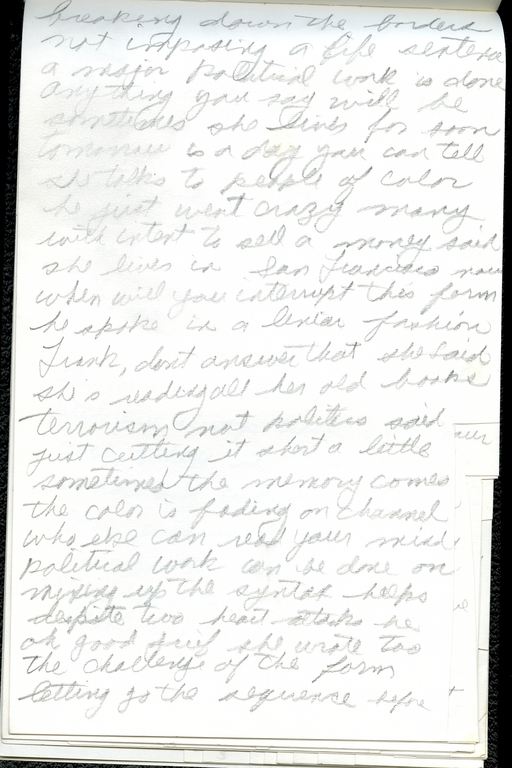 breaking down the borders
not imposing a life sentence
a major political work is done
anything you say will be
sometimes she lives for soon
tomorrow is a day you can tell
she talks to people of color
he just went crazy many
with intent to sell a money said
she lives in San Francisco now
when will you interrupt this form
he spoke in a linear fashion
Frank, dont answer that she said
she's reading all her old books
terrorism not politics said
just cutting it short a little
sometimes the memory comes
the color is fading on channel
who else can read your mind
political work can be done on
mixing up the syntax helps
despite two heart attacks he
oh good grief she wrote too
the challenge of the form
letting go the sequence before